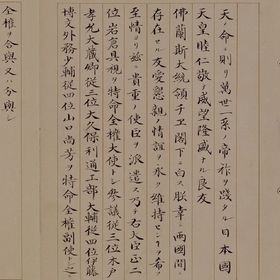 天ノ命ニ則リ萬世一系ノ帝祚ヲ踐タル日本國
天皇睦仁敬テ威望隆盛ナル良友
佛蘭斯大統領チエ閣下ニ白ス朕幸ニ両國間ニ
存在セル友愛懇親ノ情誼ヲ永ク維持センヿヲ希フ
至情ヨリ茲ニ貴重ノ使臣ヲ派遣ス乃チ右大臣正二
位岩倉具視ヲ特命全權大使トシ参議従三位木戸
孝允大蔵卿従三位大久保利通工部大輔従四位伊藤
博文外務少輔従四位山口尚芳ヲ特命全權副使トシ之ニ
全權ヲ合與シ又ハ分與シ